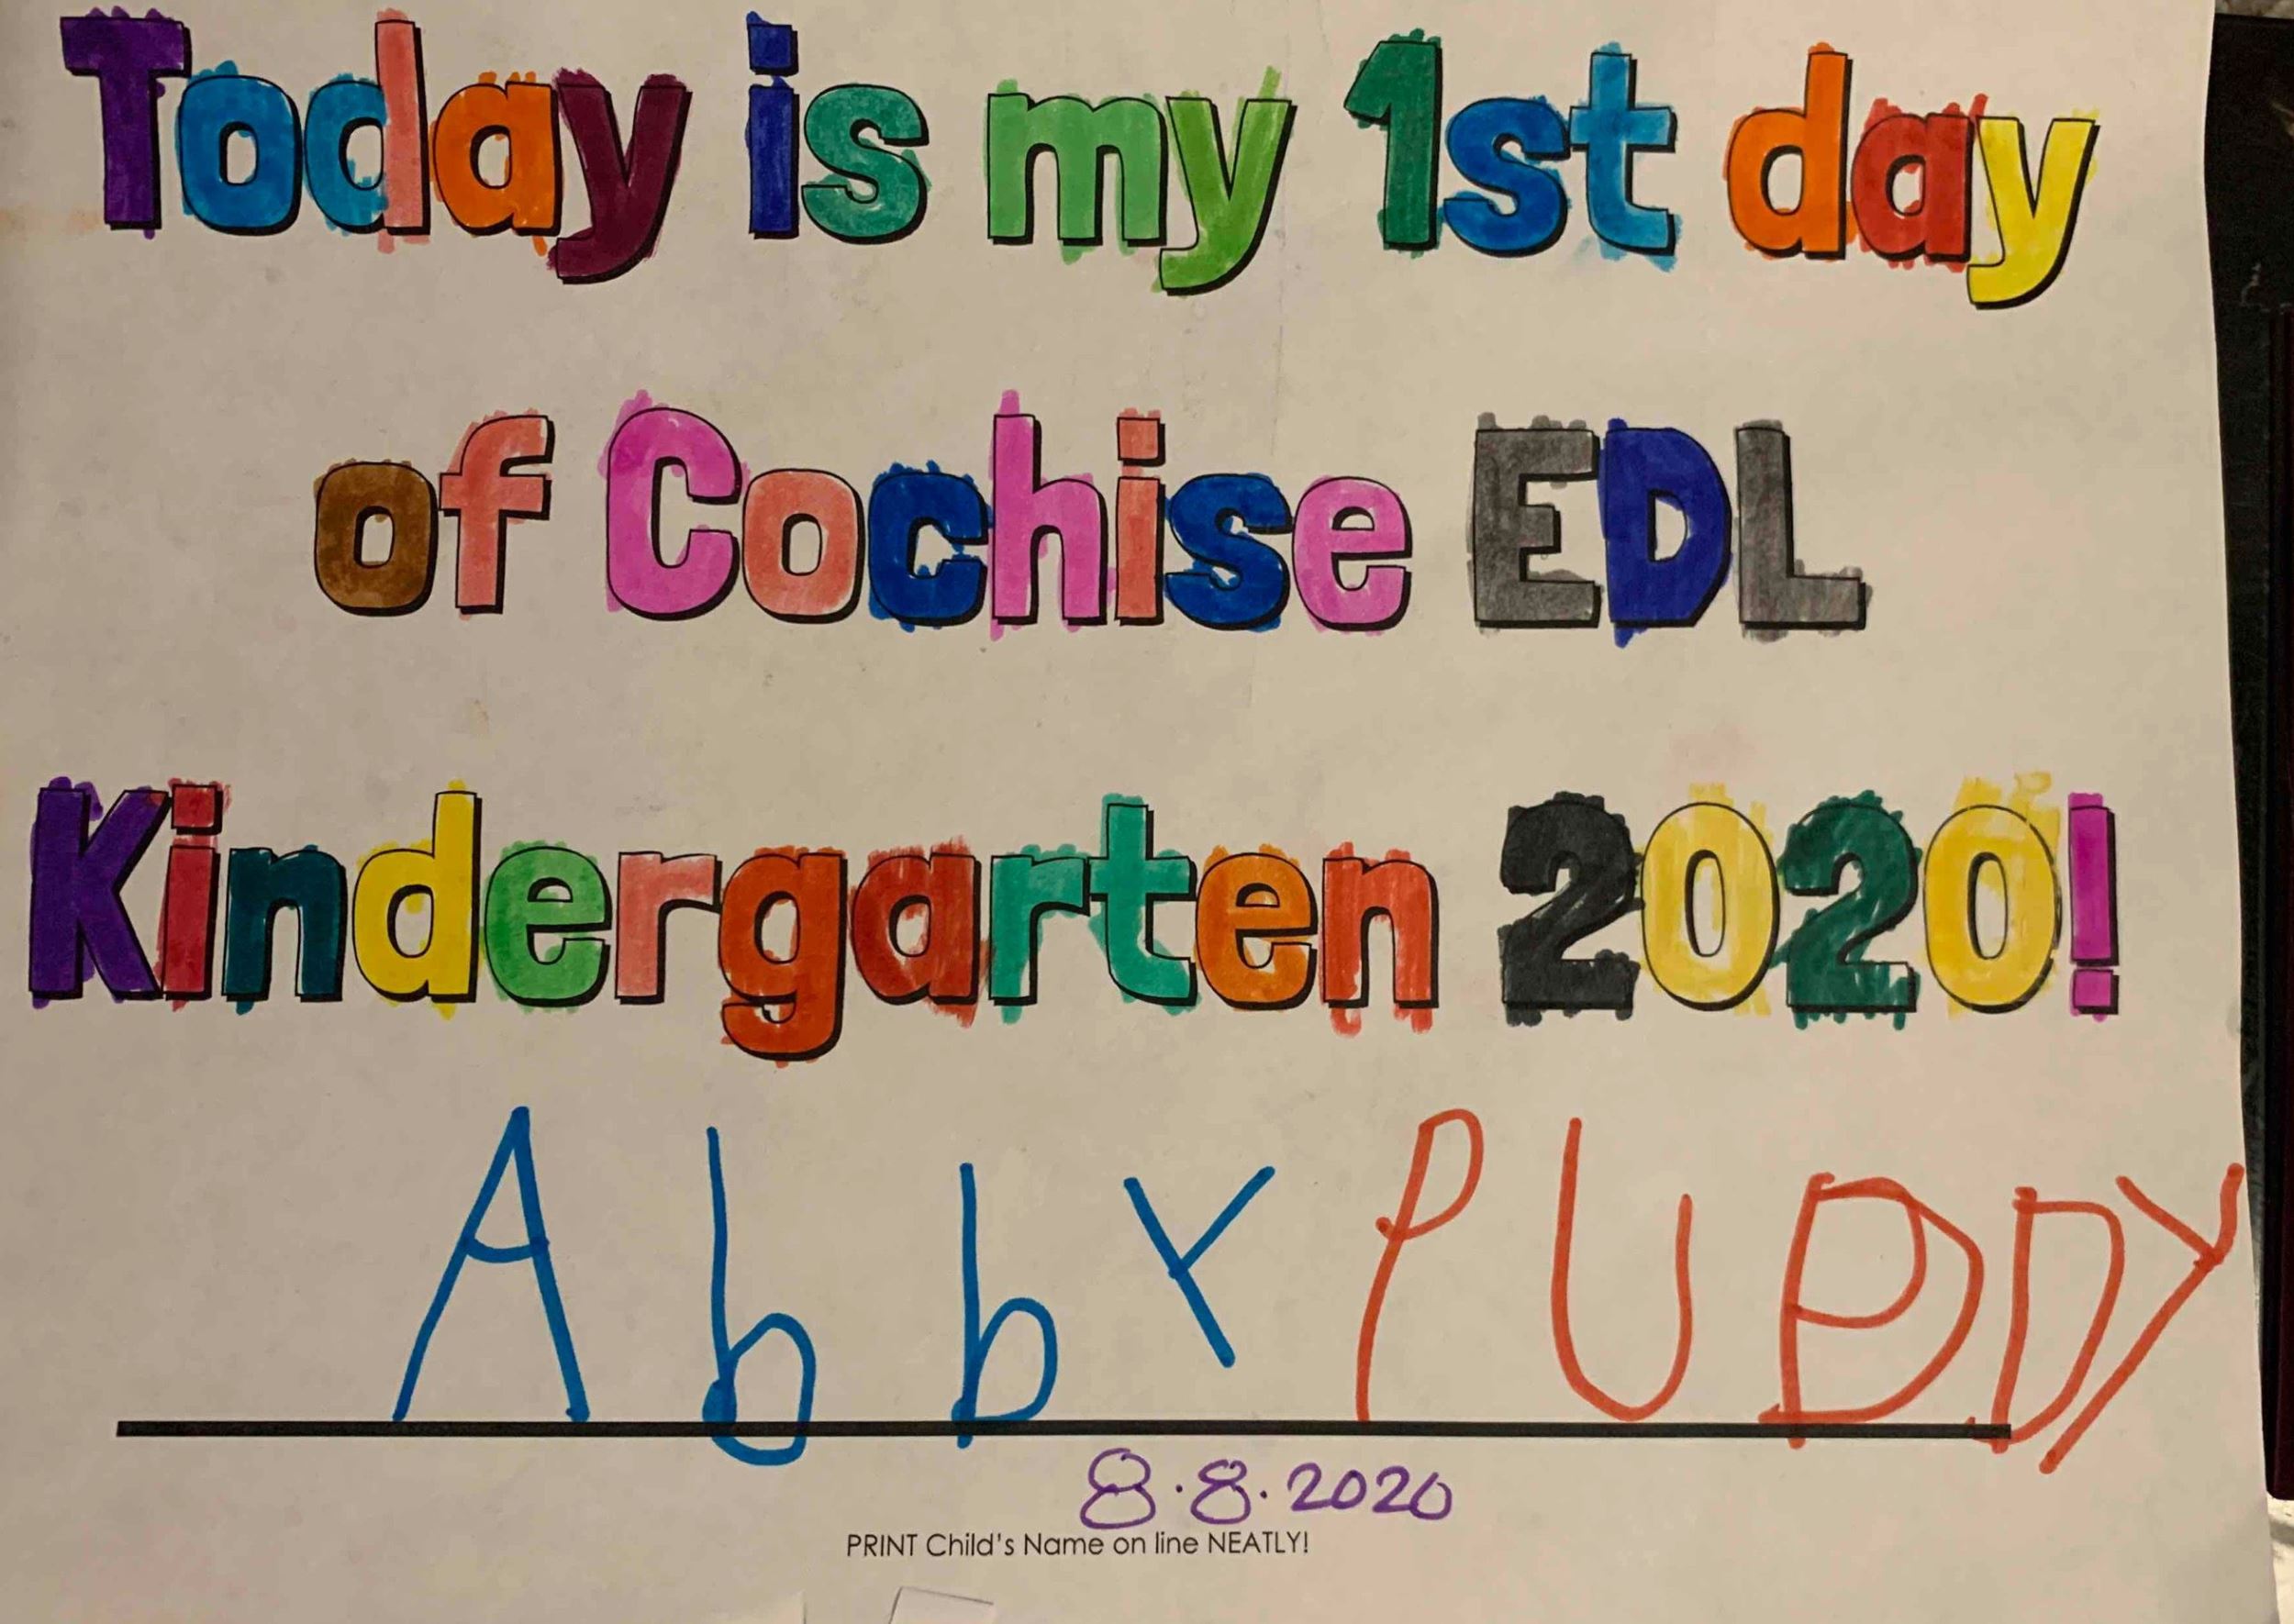 Today is my 1st day
of Cochise EDL
Kindergarten 2020!
AbbY PUDDY
8.8.2020
PRINT Child's Name on line NEATLY!